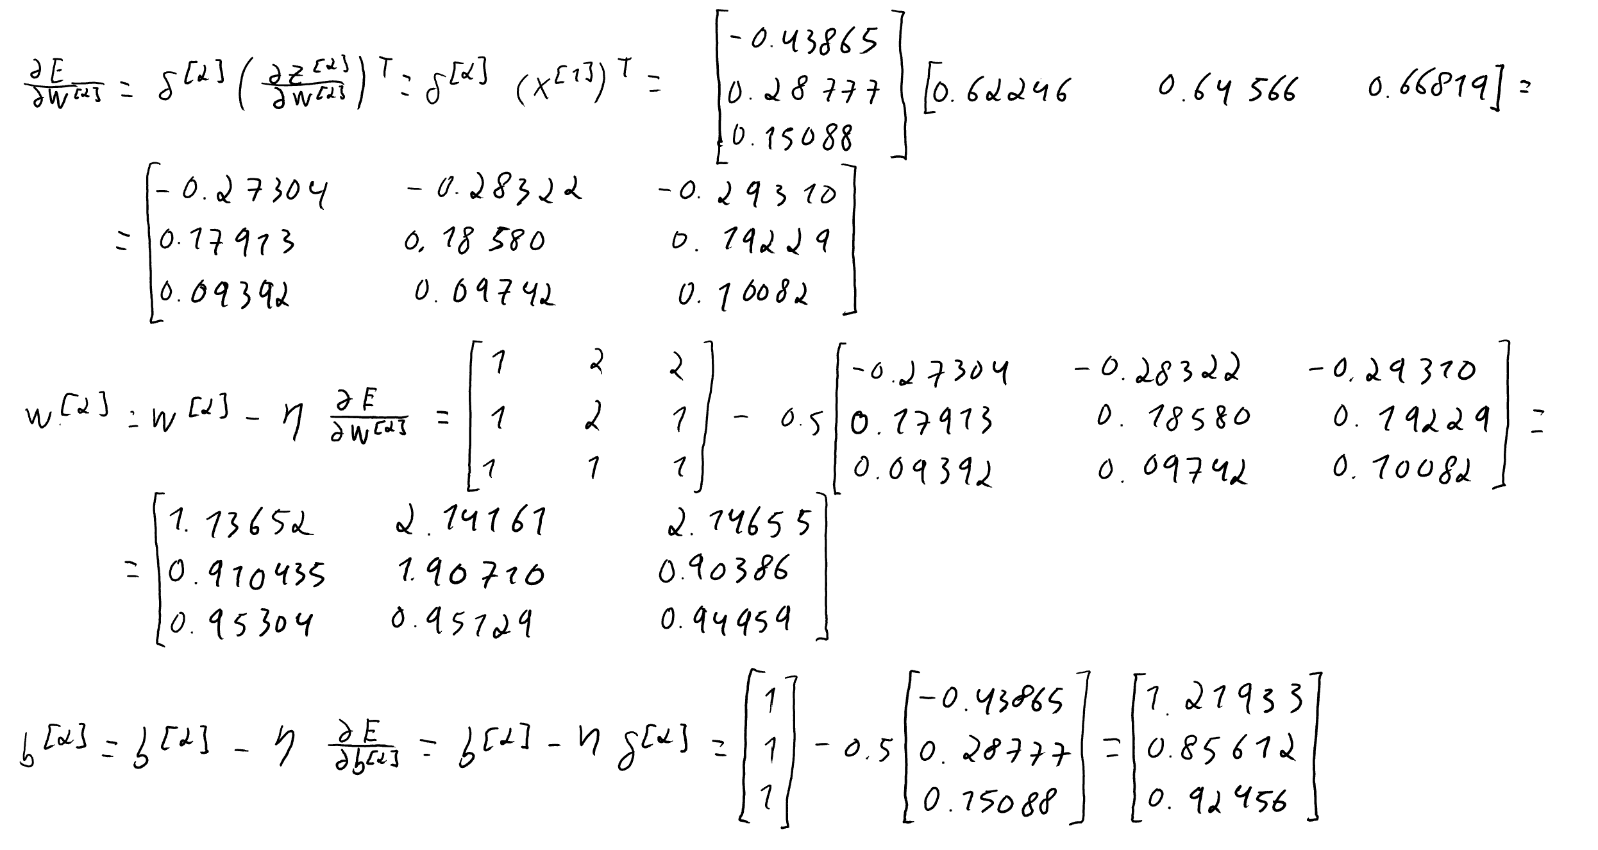 ∂E/∂W^[2] = δ^[2] (∂z^[2]/∂W^[2])^T = δ^[2] (x^[1])^T = [-0.43865; 0.28777; 0.15088] [0.62246 0.64566 0.66819] =
= [-0.27304 -0.28322 -0.29310; 0.17913 0.18580 0.19229; 0.09392 0.09742 0.10082]
W^[2] = W^[2] - η ∂E/∂W^[2] = [1 2 2; 1 2 1; 1 1 1] - 0.5 [-0.27304 -0.28322 -0.29310; 0.17913 0.18580 0.19229; 0.09392 0.09742 0.10082] =
= [1.13652 2.14161 2.14655; 0.910435 1.90710 0.90386; 0.95304 0.95129 0.94959]
b^[2] = b^[2] - η ∂E/∂b^[2] = b^[2] - η δ^[2] = [1; 1; 1] - 0.5 [-0.43865; 0.28777; 0.15088] = [1.21933; 0.85612; 0.92456]